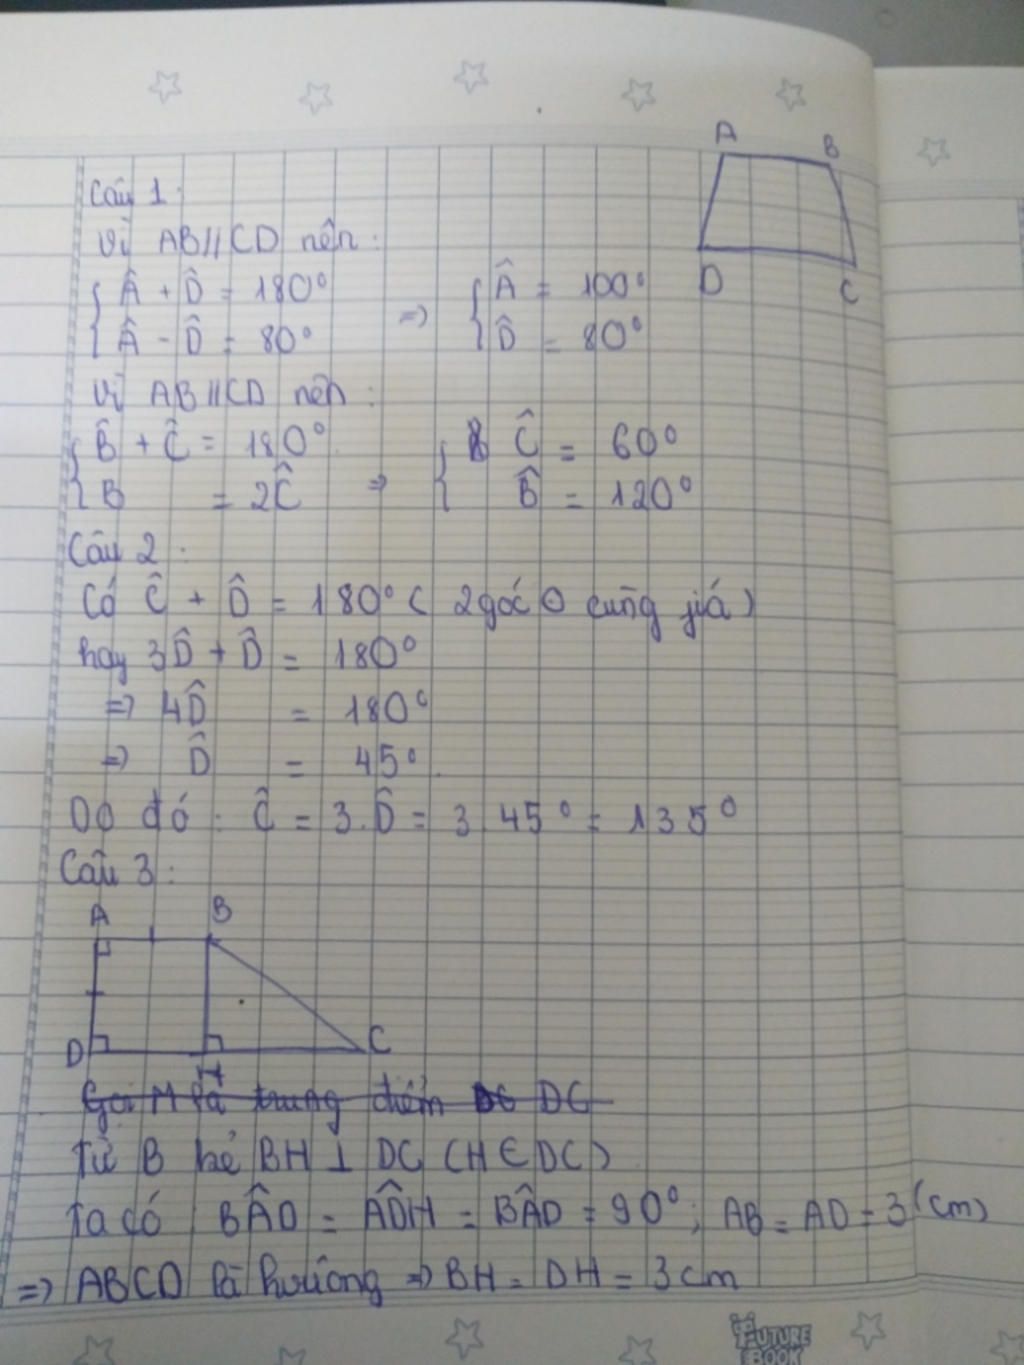 A
B
D
C
Câu 1:
Vì AB//CD nên:
{ Â + D̂ = 180° => { Â = 100°
{ Â - D̂ = 80° { D̂ = 80°
Vì AB//CD nên:
{ B̂ + Ĉ = 180° { Ĉ = 60°
{ B = 2Ĉ => { B̂ = 120°
Câu 2:
Có Ĉ + D̂ = 180° ( 2 góc cùng )
hay 3D̂ + D̂ = 180°
=> 4D̂ = 180°
=> D̂ = 45°.
Do đó: Ĉ = 3.D̂ = 3.45° = 135°
Câu 3:
A B
D H C
Gọi M là trung điểm DC
Từ B kẻ BH ⊥ DC (H ∈ DC)
Ta có BÂD = AD̂H = BÂD = 90°; AB = AD = 3 (cm)
=> ABCD là => BH = DH = 3cm
FUTURE
BOOK